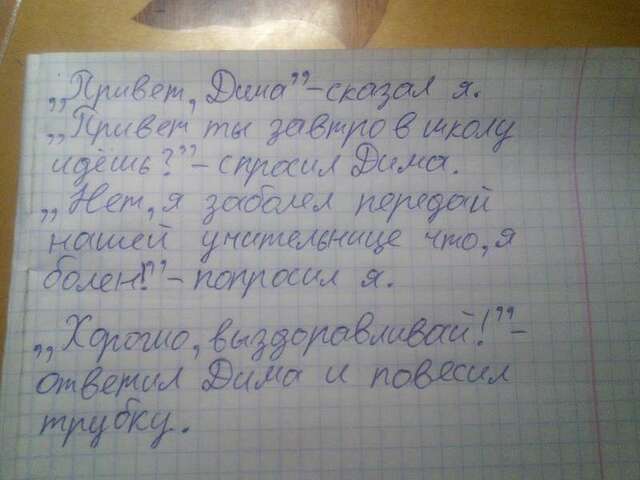 „Привет, Дима”-сказал я.
„Привет ты завтро в школу
идёшь?”-спросил Дима.
„Нет, я заболел передай
нашей учительнице что, я
болен!”-попросил я.
„Хорошо, выздоравливай!”-
ответил Дима и повесил
трубку.